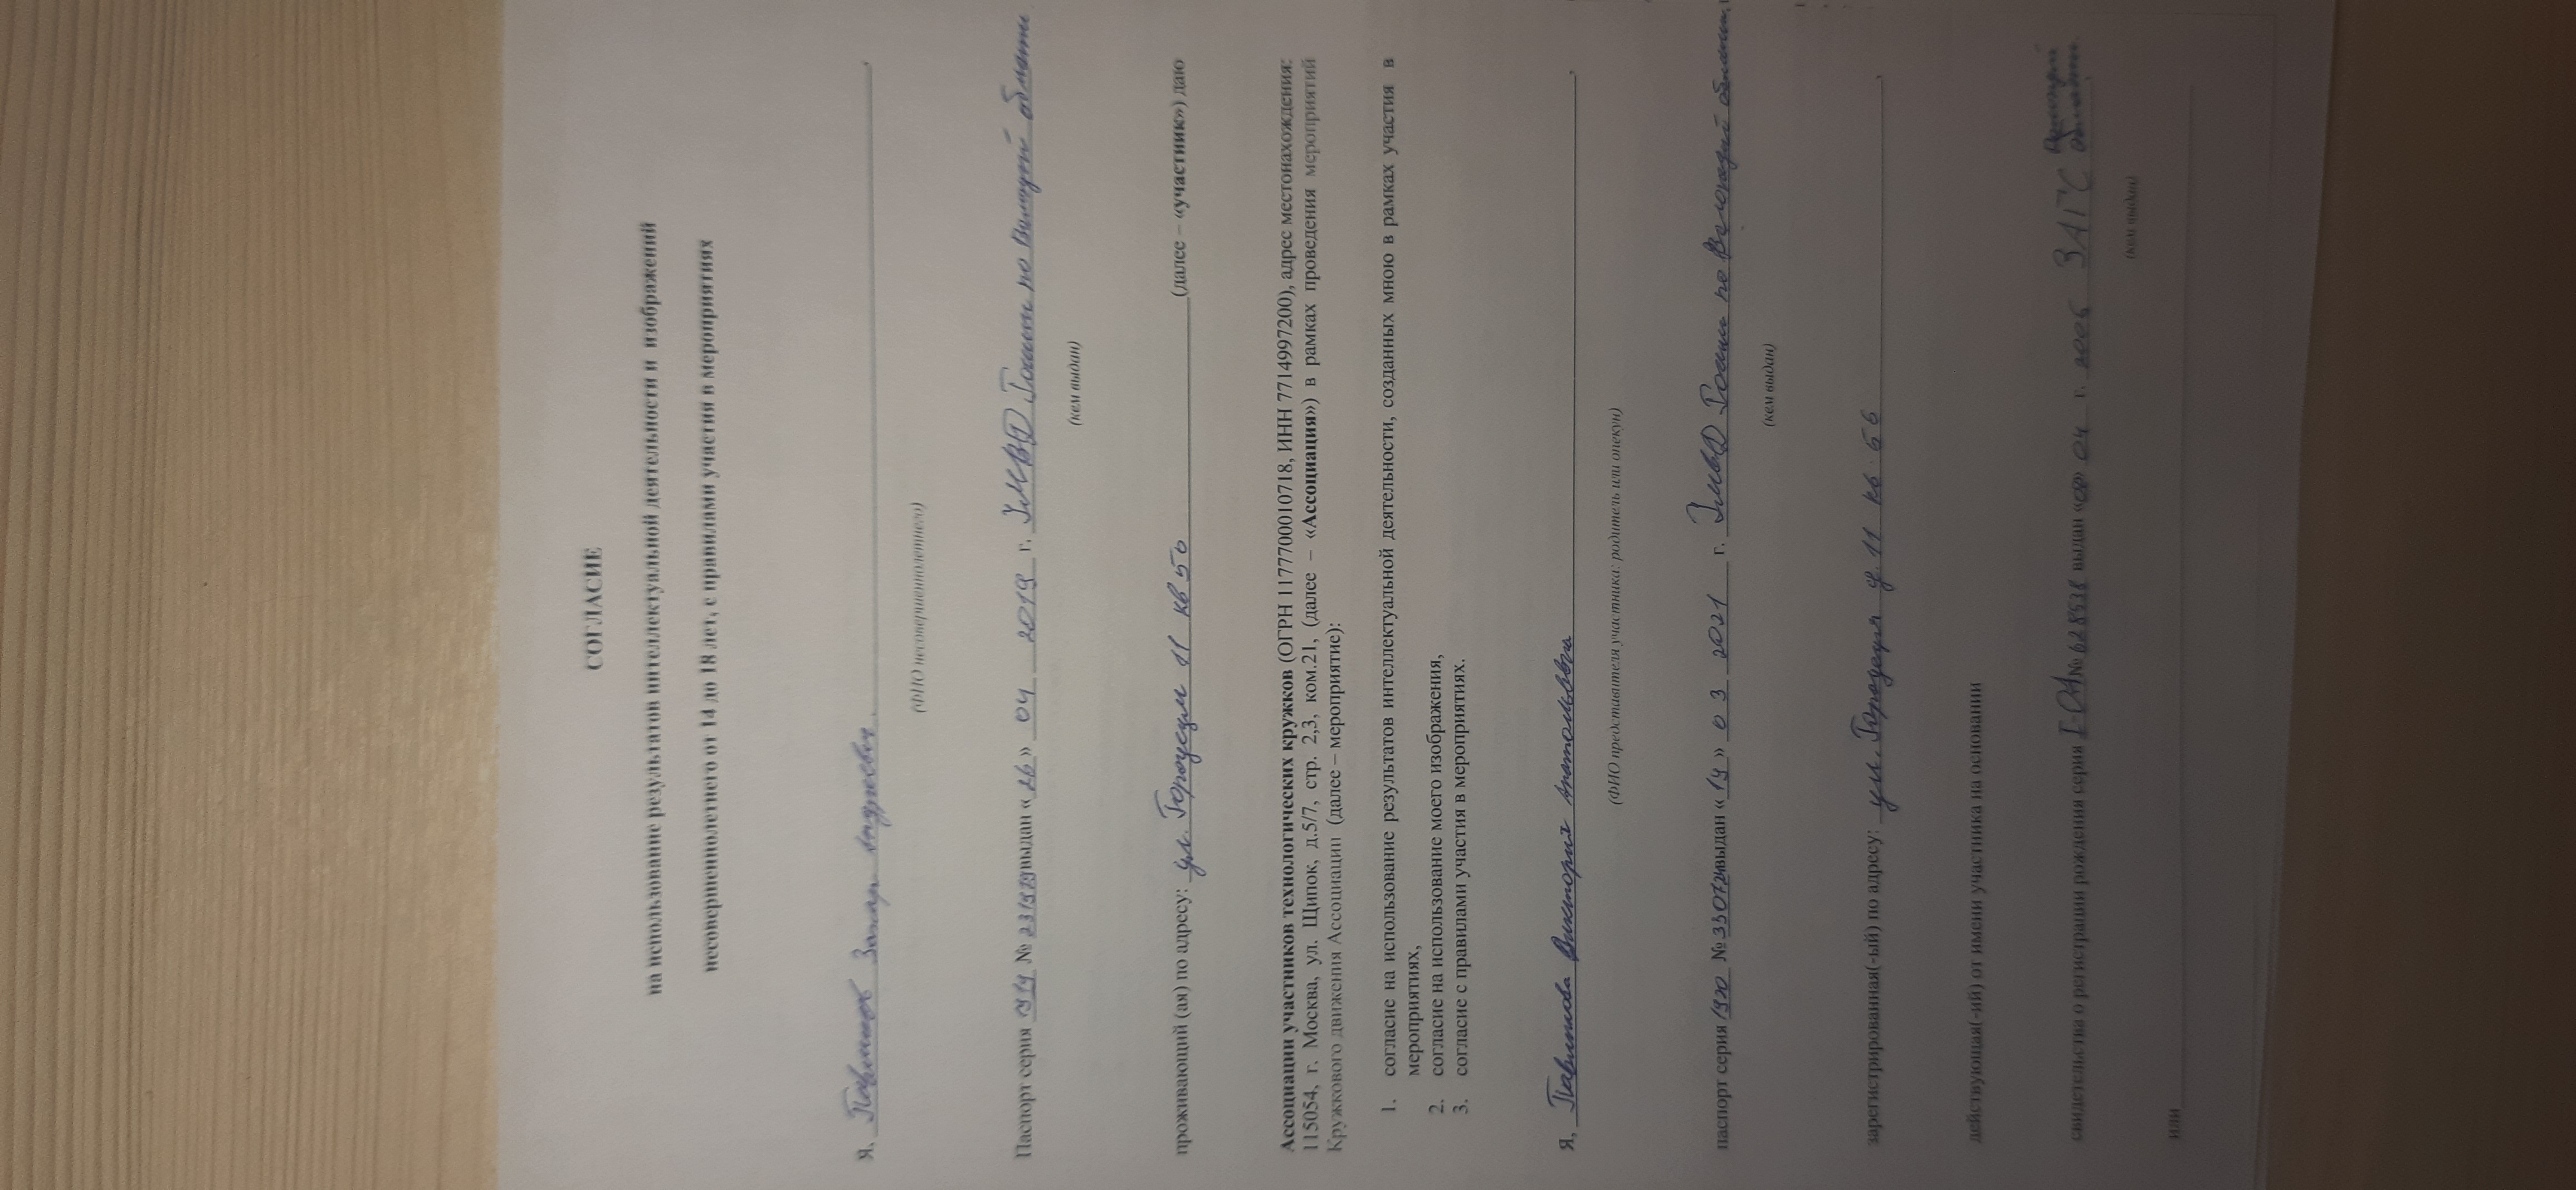 СОГЛАСИЕ
на использование результатов интеллектуальной деятельности и изображений
несовершеннолетнего от 14 до 18 лет, с правилами участия в мероприятиях
Я, Захар Андреевич.
(ФИО несовершеннолетнего)
Паспорт серия № выдан « 26 » 04 2019 г. УМВД России по Вологодской области
(кем выдан)
проживающий (ая) по адресу: ул. 11 кв 56 (далее – «участник») даю
Ассоциации участников технологических кружков (ОГРН 1177700010718, ИНН 7714997200), адрес местонахождения:
115054, г. Москва, ул. Щипок, д.5/7, стр. 2,3, ком.21, (далее – «Ассоциация») в рамках проведения мероприятий
Кружкового движения Ассоциации (далее – мероприятие):
1. согласие на использование результатов интеллектуальной деятельности, созданных мною в рамках участия в
мероприятиях,
2. согласие на использование моего изображения,
3. согласие с правилами участия в мероприятиях.
Я, Виктория Анатольевна
(ФИО представителя участника: родитель или опекун)
паспорт серия 1920 № выдан « 19 » 03 2021 г. УМВД России по Вологодской области,
(кем выдан)
зарегистрированная(-ый) по адресу: ул. д. 11 кв 56,
действующая(-ий) от имени участника на основании
свидетельства о регистрации рождения серия № 628538 выдан « » 04 г. 2005 ЗАГС Вологодской области
(кем выдан)
или